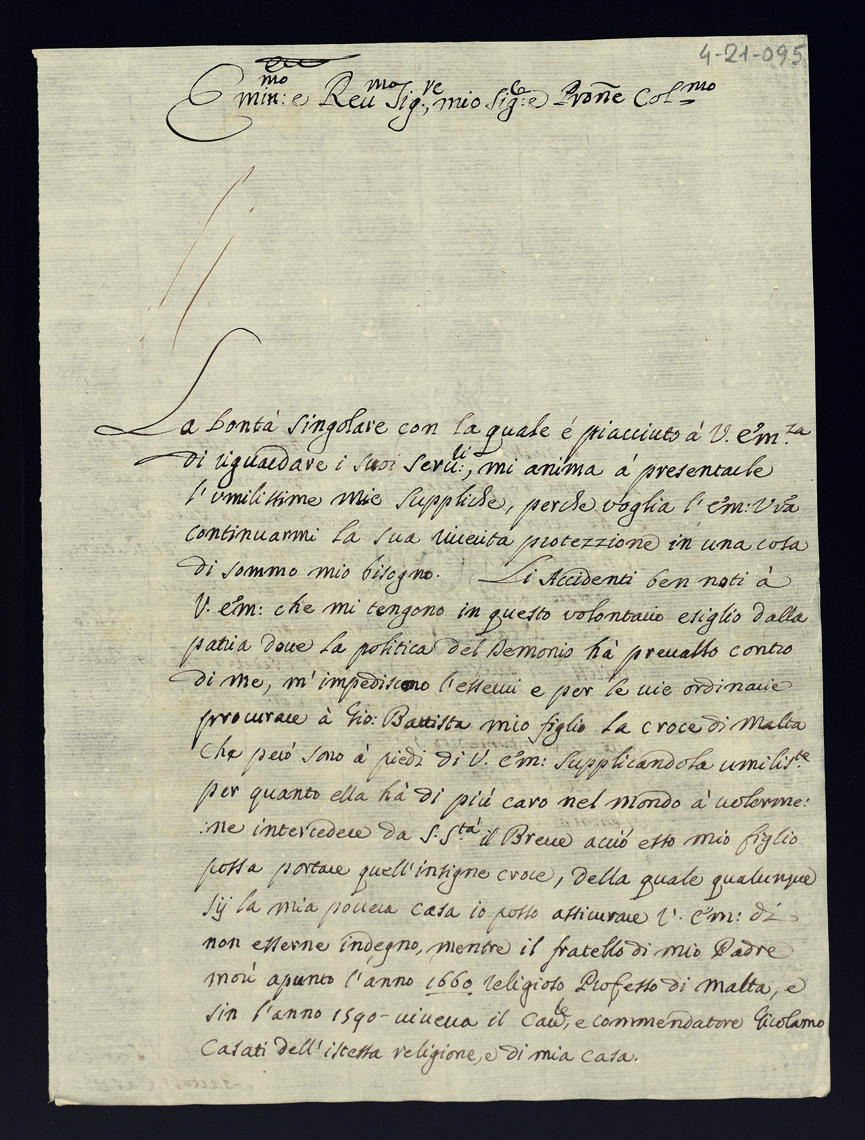 4-21-095
Emin:mo e Reumo Sig:re, mio Sig:e e Prone Colmo
La bontà singolare con la quale é piacciuto á V. Em.za
di riguardare i suoi seru:li, mi anima á presentarle
l'vmilissime mie suppliche, perche voglia l'Em: Vra
continuarmi la sua riuerita protezzione in una cosa
di sommo mio bisogno. Li Accidenti ben noti á
V. Em: che mi tengono in questo volontario esiglio dalla
patria doue la politica del Demonio há preualso contro
di me, m'impediscono l'esserui e per le uie ordinarie
procurare à Gio: Battista mio figlio la croce di Malta
che peró sono á piedi di V. Em: supplicandola umiliste
per quanto ella há di piú caro nel mondo á uolerme:
:ne intercedere da S. Stà il Breue acció esso mio figlio
possa portare quell'insigne croce, della quale qualunque
sij la mia pouera casa io posso assicurare V. Em: di
non esserne indegno, mentre il fratello di mio Padre
morì apunto l'anno 1660 religioso Professo di Malta, e
sin l'anno 1590 - uiueua il Caule, e commendatore Gicolamo
Casati dell'istessa religione, e di mia casa.